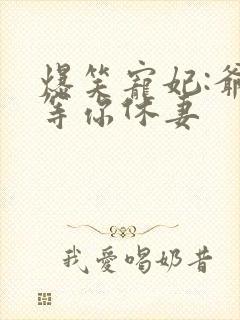 爆笑寵妃:爺
等你休妻
我愛唱奶昔